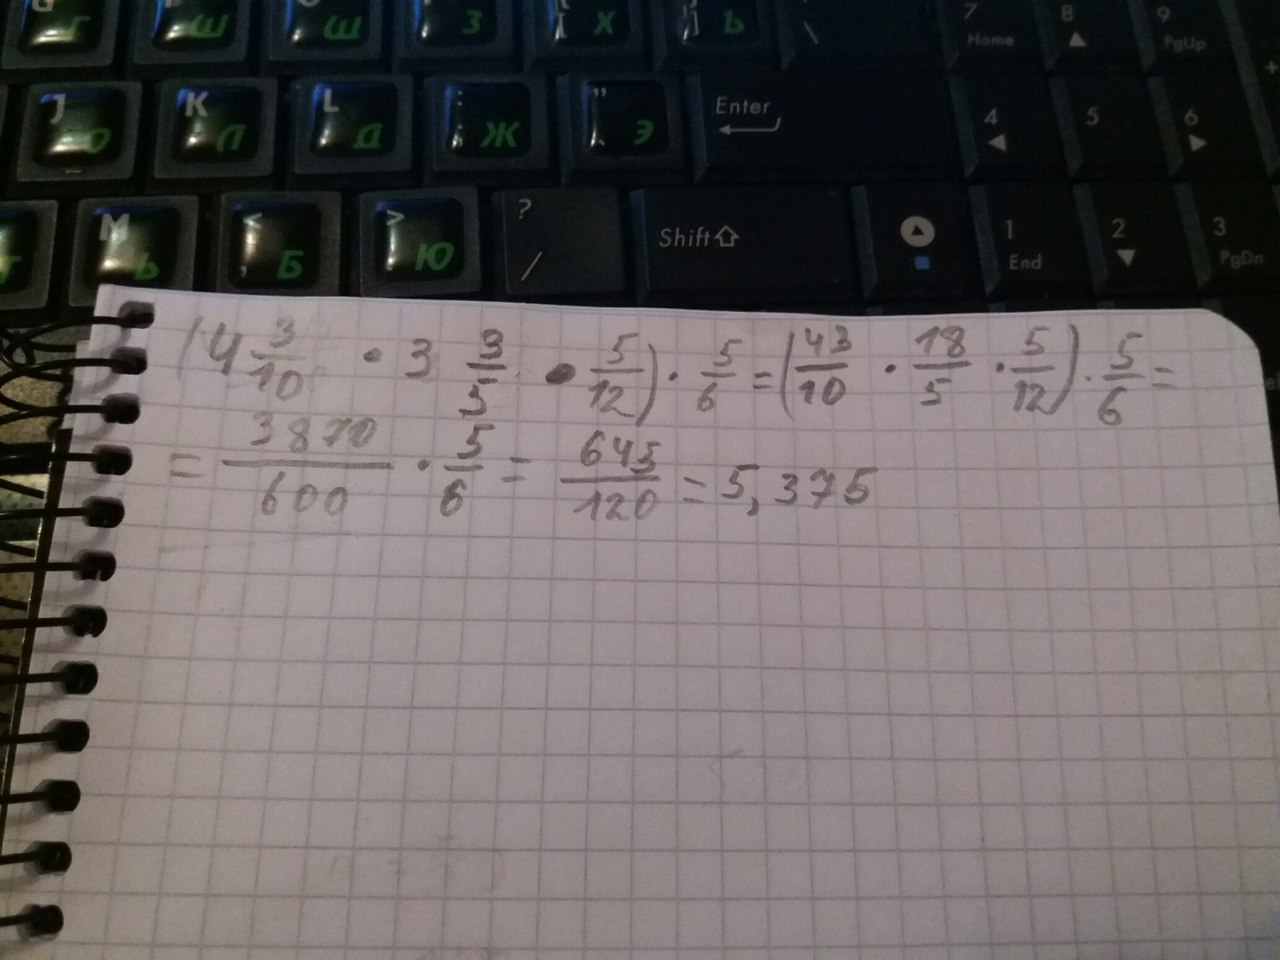 Г Ш Щ З [ Х ] Ъ \ 7 Home 8 9 PgUp
J О K Л L Д : ; Ж " Э Enter 4 5 6
М Ь < , Б > . Ю ? / Shift 1 End 2 3 PgDn
(4 3/10 · 3 3/5 · 5/12) · 5/6 = (43/10 · 18/5 · 5/12) · 5/6 =
= 3870/600 · 5/6 = 645/120 = 5,375